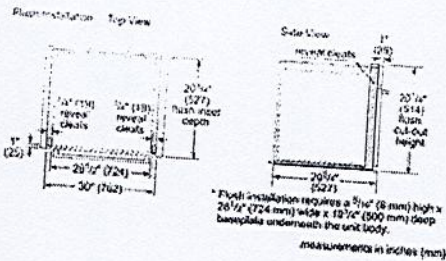 Flush Installation - Top View
20 3/4"
(527)
flush inset
depth
3/4" (19)
reveal
cleats
3/4" (19)
reveal
cleats
1"
(25)
28 1/2" (724)
30" (762)
Side View
1"
(25)
reveal cleats
(514)
flush
cut-out
height
20 3/4"
(527)
* Flush installation requires a 5/16" (8 mm) high x
28 1/2" (724 mm) wide x (500 mm) deep
baseplate underneath the unit body.
measurements in inches (mm)